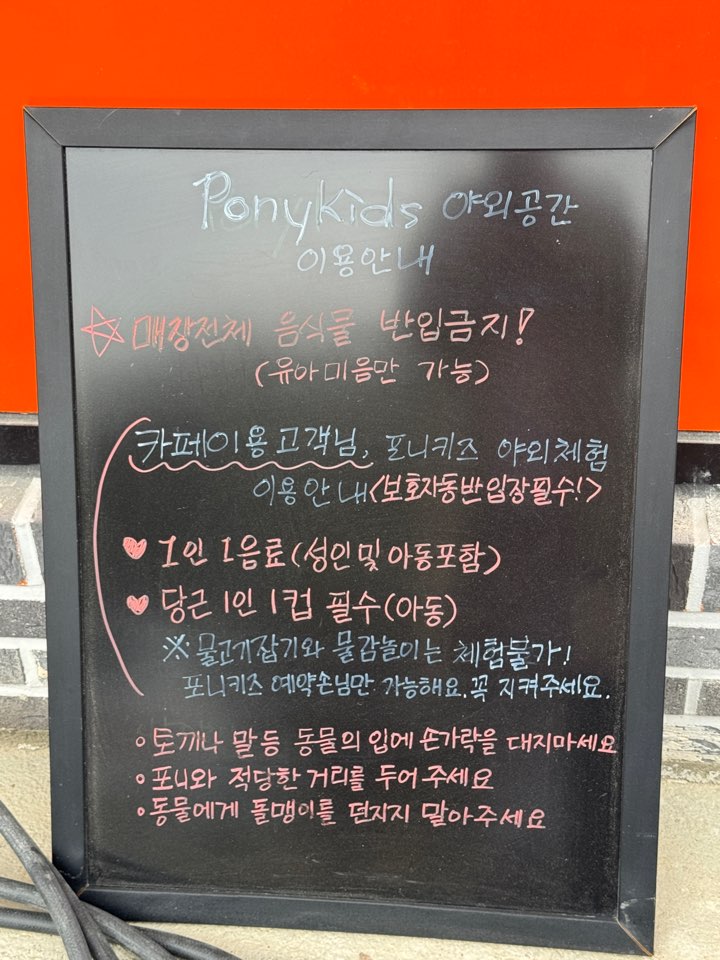 PonyKids 야외공간
이용안내
☆ 매장전체 음식물 반입금지!
(유아미음만 가능)
카페이용고객님, 포니키즈 야외체험
이용안내<보호자동반입장필수!>
♥ 1인 1음료(성인및아동포함)
♥ 당근 1인 1컵 필수(아동)
※ 물고기잡기와 물감놀이는 체험불가!
포니키즈 예약손님만 가능해요. 꼭 지켜주세요.
○토끼나 말등 동물의 입에 손가락을 대지마세요
○포니와 적당한 거리를 두어주세요
○동물에게 돌맹이를 던지지 말아주세요